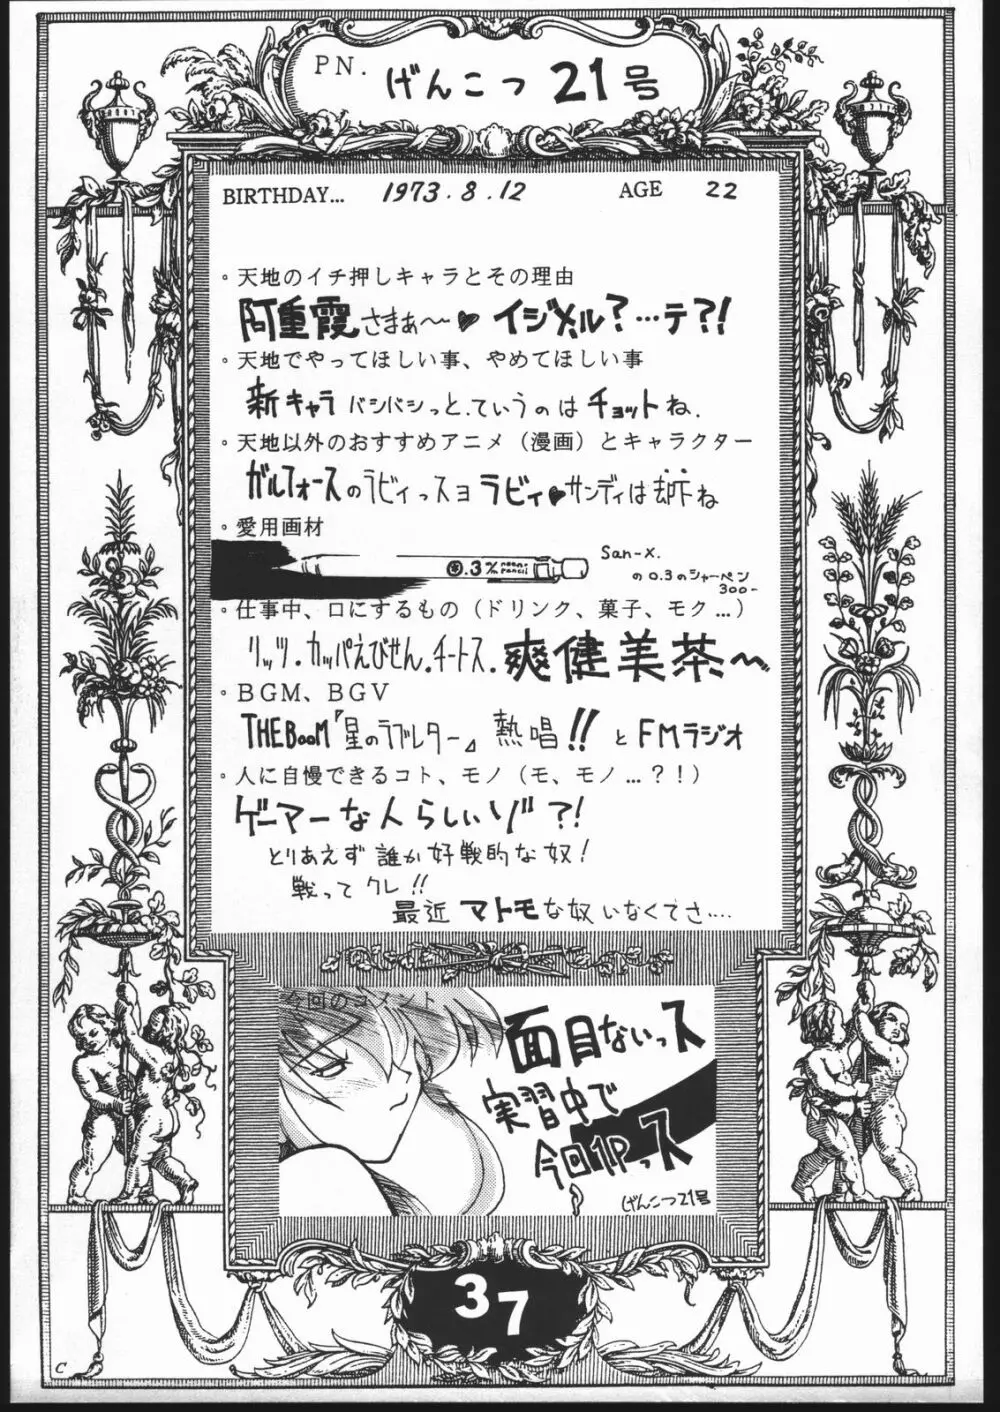 PN. げんこつ21号
BIRTHDAY... 1973.8.12 AGE 22
。天地のイチ押しキャラとその理由
阿重霞さまぁ〜♥イジメル?…テ?!
。天地でやってほしい事、やめてほしい事
新キャラバシバシっと.ていうのはチョットね.
。天地以外のおすすめアニメ（漫画）とキャラクター
ガルフォースのラビィっスヨラビィ♥サンディは却下ね
。愛用画材
0.3 San-x.
の0.3のシャーペン
300-
。仕事中、口にするもの（ドリンク、菓子、モク…）
リッツ.カッパえびせん.チートス.爽健美茶〜
。BGM、BGV
THE BooM『星のラブレター』熱唱!!とFMラジオ
。人に自慢できるコト、モノ（モ、モノ…？！）
ゲーマーな人らしいゾ?!
とりあえず誰か好戦的な奴!
戦ってクレ!!
最近マトモな奴いなくてさ....
今回のコメント
面目ないっス
実習中で
今回1Pっス
げんこつ21号
37
C